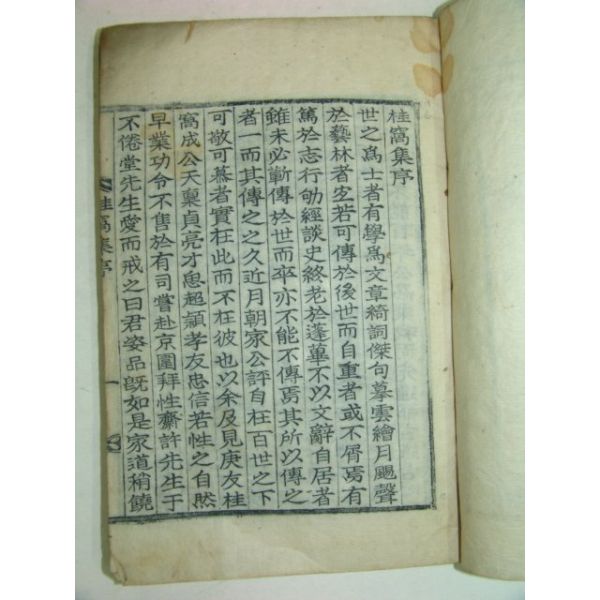 桂窩集序
世之爲士者有學爲文章綺詞傑句摹雲繪月颺聲
於藝林者宜若可傳於後世而自重者或不屑焉有
篤於志行劬經談史終老於蓬蓽不以文辭自居者
雖未必蘄傳於世而卒亦不能不傳焉其所以傳之
者一而其傳之之久近月朝家公評自在百世之下
可敬可慕者實在此而不在彼也以余及見庚友桂
窩成公天稟貞亮才思超穎孝友忠信若性之自然
早業功令不售於有司嘗赴京圍拜性齋許先生于
不倦堂先生愛而戒之曰君姿品旣如是家道稍饒
桂窩集序
一